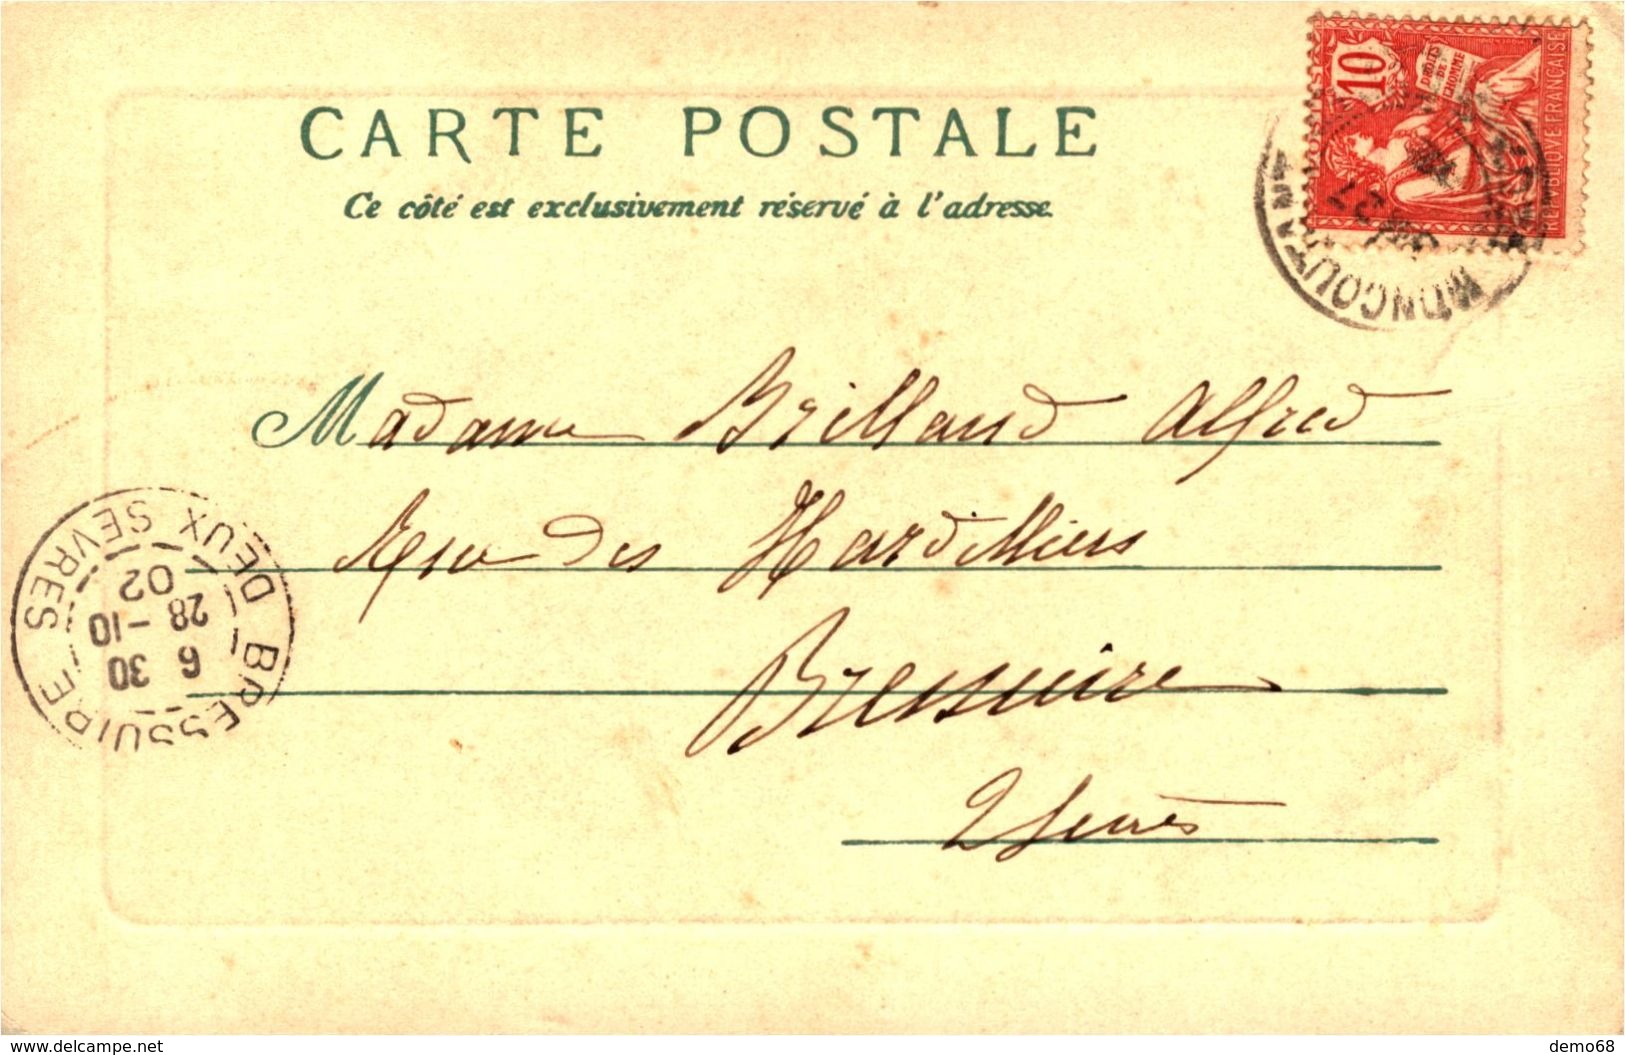 CARTE POSTALE
Ce côté est exclusivement réservé à l'adresse.
10
DROITS
DE
L'HOMME
REPUBLIQUE FRANÇAISE
MONCOUTANT
Madame Brillaud Alfred
Rue des Hardilliers
Bressuire
2 Sèvres
BRESSUIRE
6 30
28 -10
02
DEUX SEVRES
www.delcampe.net
demo68